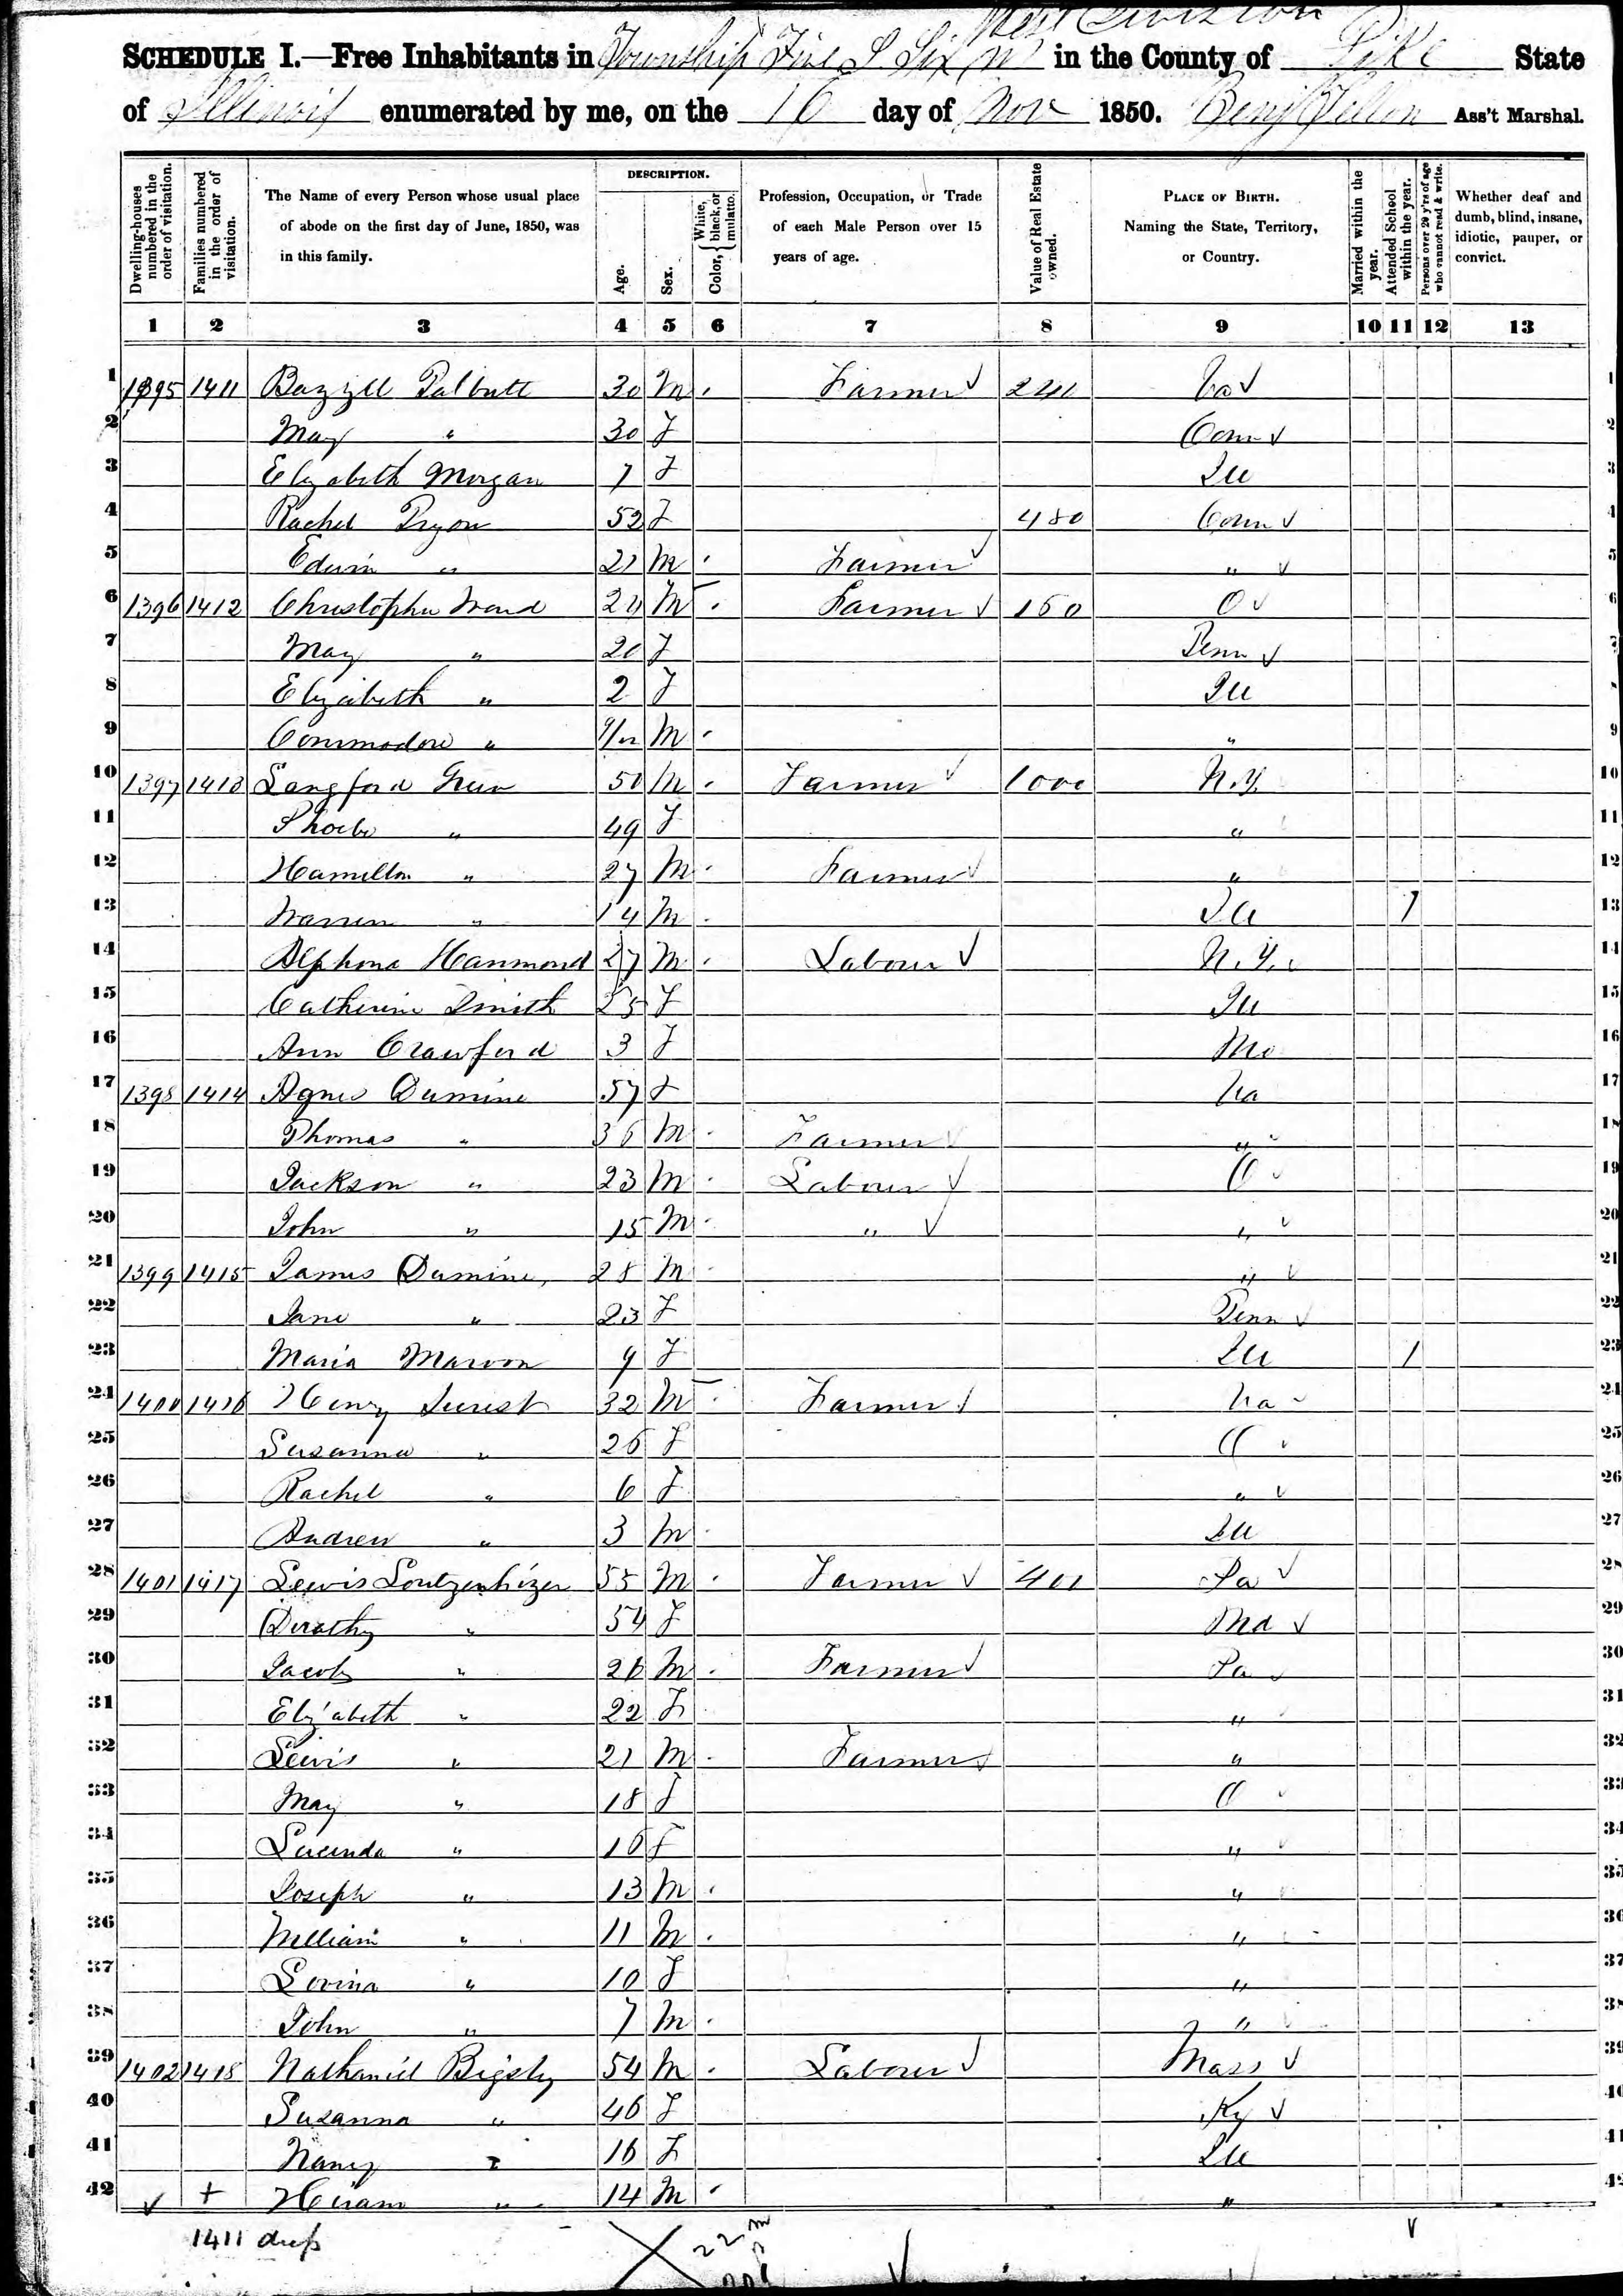 West Division
SCHEDULE I.—Free Inhabitants in Township Five S Six W in the County of Pike State
of Illinois enumerated by me, on the 16 day of Nov 1850. Benj Ass't Marshal.
Dwelling-houses numbered in the order of visitation.
Families numbered in the order of visitation.
The Name of every Person whose usual place of abode on the first day of June, 1850, was in this family.
DESCRIPTION.
Age.
Sex.
Color, White, black, or mulatto.
Profession, Occupation, or Trade of each Male Person over 15 years of age.
Value of Real Estate owned.
PLACE OF BIRTH. Naming the State, Territory, or Country.
Married within the year.
Attended School within the year.
Persons over 20 y'rs of age who cannot read & write.
Whether deaf and dumb, blind, insane, idiotic, pauper, or convict.
1 2 3 4 5 6 7 8 9 10 11 12 13
1 1395 1411 Bazzell Talbutt 30 M Farmer 240 Va 1
2 May " 30 F Conn 2
3 Elizabeth Morgan 7 F Ill 3
4 Rachel Pryon 52 F 480 Conn 4
5 Edwin " 21 M Farmer " 5
6 1396 1412 Christopher Ward 24 M Farmer 160 O 6
7 May " 20 F Tenn 7
8 Elizabeth " 2 F Ill
9 Commodore " 9/12 M " 9
10 1397 1413 Langford Green 50 M Farmer 1000 N.Y. 10
11 Phoebe " 49 F " 11
12 Hamilton " 27 M Farmer " 12
13 Warren " 14 M Ill 1 13
14 Alphons Hammond 27 M Labour N.Y. 14
15 Catherine Smith 25 F Ill 15
16 Ann Crawford 3 F Mo 16
17 1398 1414 Agnes Damine 57 F Va 17
18 Thomas " 36 M Farmer " 18
19 Jackson " 23 M Labour O 19
20 John " 15 M " " 20
21 1399 1415 James Damine 28 M " 21
22 Jane " 23 F Tenn 22
23 Maria Marvon 9 F Ill 1 23
24 1400 1416 Henry Secrist 32 M Farmer Va 24
25 Susanna " 26 F O 25
26 Rachel " 6 F " 26
27 Andrew " 3 M Ill 27
28 1401 1417 Lewis Loutzenhizer 55 M Farmer 400 Pa 28
29 Dorothy " 54 F Md 29
30 Jacob " 26 M Farmer Pa 30
31 Elizabeth " 22 F " 31
32 Lewis " 21 M Farmer " 32
33 May " 18 F O 33
34 Lucinda " 16 F " 34
35 Joseph " 13 M " 35
36 William " 11 M " 36
37 Lovina " 10 F " 37
38 John " 7 M " 38
39 1402 1418 Nathaniel Bigsby 54 M Labour Mass 39
40 Susanna " 46 F Ky 40
41 Nancy " 16 F Ill 41
42 + Hiram " 14 M " 42
1411
22 m